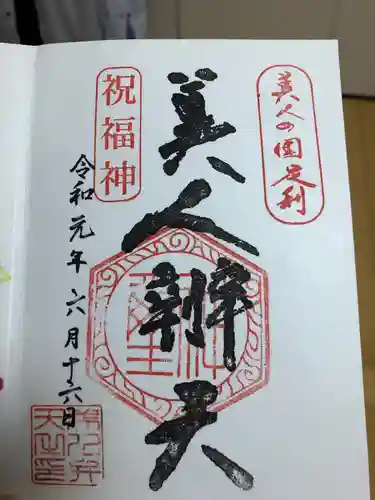 美人の国足利
美人辨天
祝福神
令和元年六月十六日